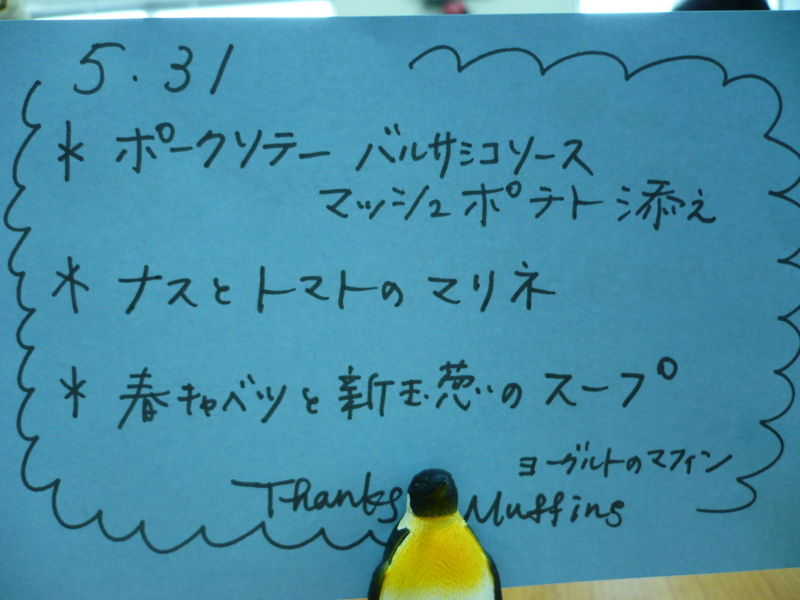 5.31
* ポークソテー バルサミコソース
マッシュポテト添え
* ナスとトマトのマリネ
* 春キャベツと新玉葱のスープ
ヨーグルトのマフィン
Thanks Muffins